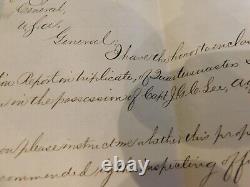 General,
U.S.A.
General,
I have the honor to enclose
Report in triplicate, of Quartermaster
in the possession of Capt. J.G.C. Lee, A.
you please instruct me whether this prop
commended by an inspecting off